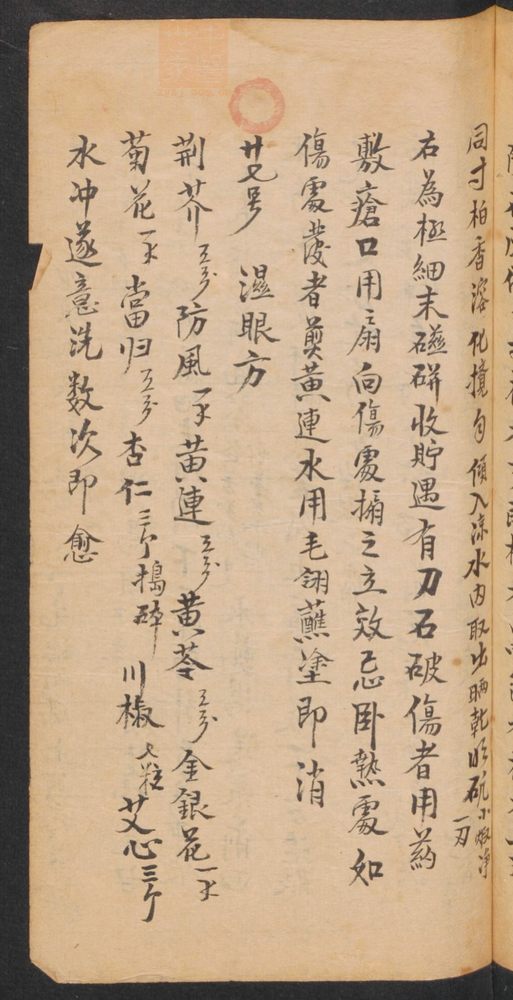 同寸柏香溶化攪匀傾入涼水內取出晒乾
右為極細末磁硑收貯遇有刀石破傷者用葯
敷瘡口用扇向傷處搧之立效忌卧熱處如
傷處發者煎黃連水用毛翎蘸塗即消
廿七号 濕眼方
荆芥五分防風一錢黃連五分黃芩五分金銀花一錢
菊花一錢當归五分杏仁三个搗碎川椒七粒艾心三个
水冲遂意洗数次即愈